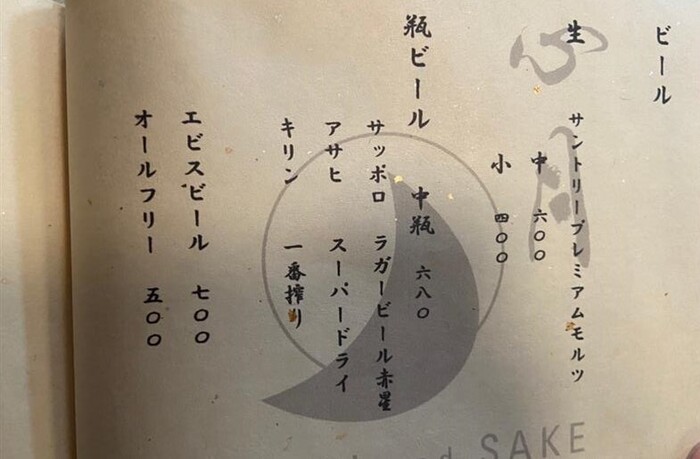 ビール
生 サントリープレミアムモルツ
中 六〇〇
小 四〇〇
瓶ビール 中瓶 六八〇
サッポロ ラガービール赤星
アサヒ スーパードライ
キリン 一番搾り
エビスビール 七〇〇
オールフリー 五〇〇
心月
SAKE